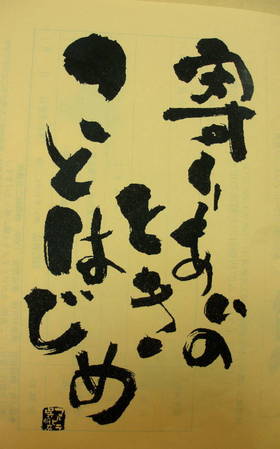 寄りあいの
とき
ことはじめ